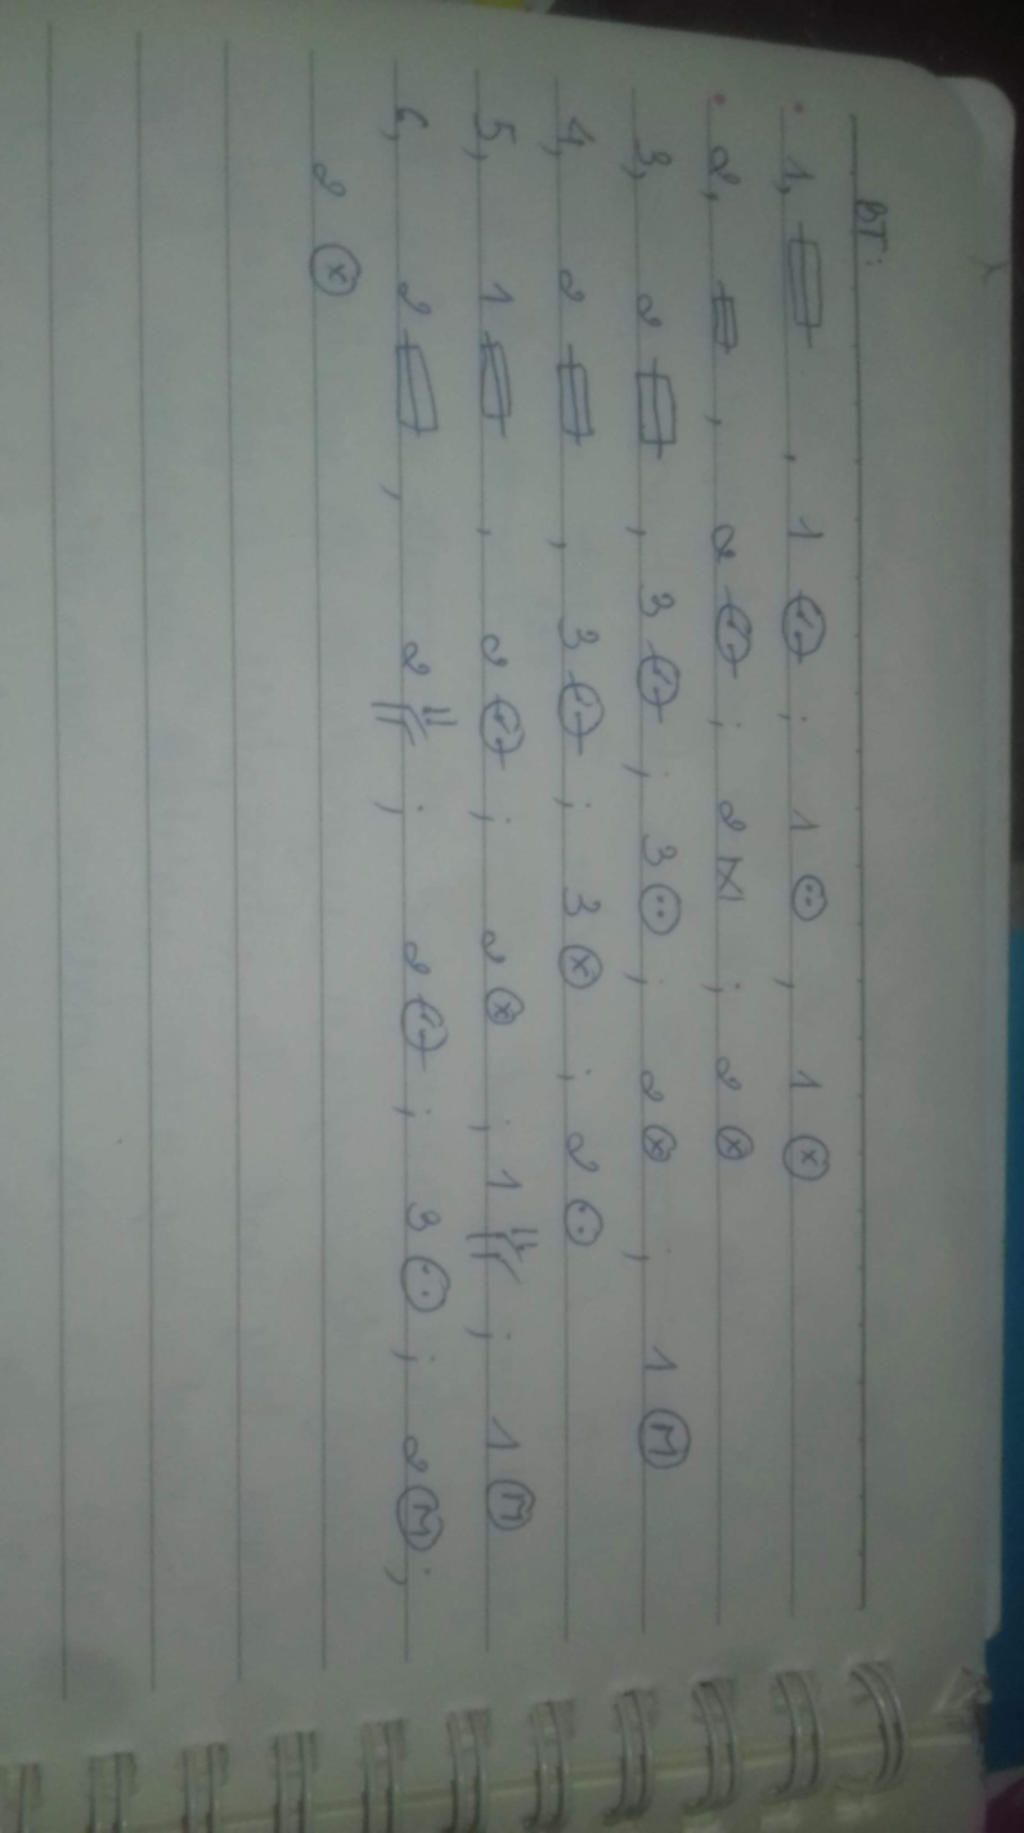 BT:
1, , 1 ; 1 , 1 ⓧ
2, , 2 ; 2 ; 2 ⓧ
3, 2 , 3 ; 3 ; 2 ⓧ , 1 Ⓜ
4, 2 , 3 ; 3 ⓧ ; 2
5, 1 , 2 ; 2 ⓧ ; 1 ; 1 Ⓜ
6, 2 , 2 ; 2 ; 3 ; 2 Ⓜ ;
2 ⓧ